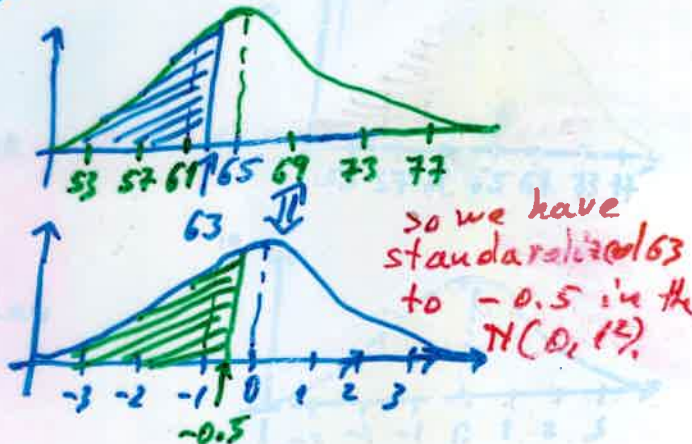 53 57 61 65 69 73 77
63
so we have
standaralized 63
to -0.5 in the
N(0, 1²).
-3 -2 -1 0 1 2 3
-0.5